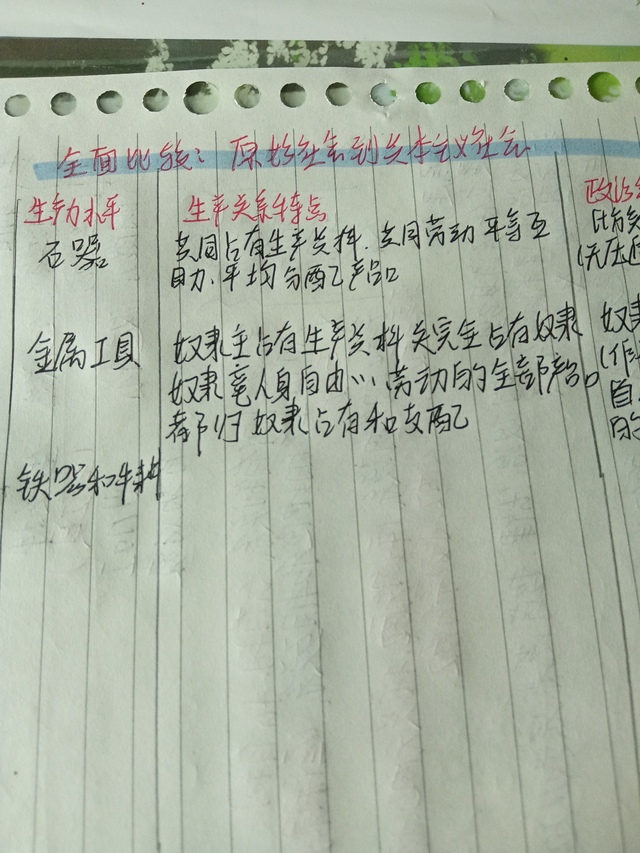 全面比较：原始社会到资本主义社会
生产力水平 生产关系特点 政治
石器
共同占有生产资料、共同劳动 平等互
助、平均分配产品
金属工具
奴隶主占有生产资料 完全占有奴隶
奴隶 人身自由… 劳动的全部产品
都归 奴隶占有和支配
铁器和牛耕
(无压
奴隶
的